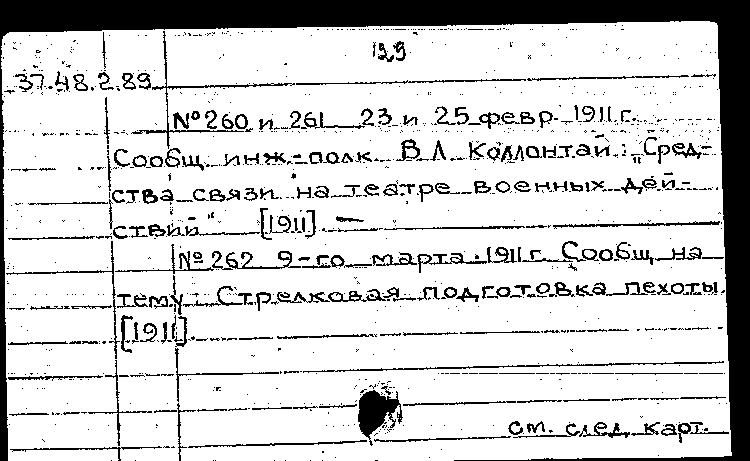 129
37.48.2.89
№ 260 и 261 23 и 25 февр. 1911 г.
Сообщ. инж.-полк. В Л. Коллонтай: „Сред-
ства связи на театре военных дей-
ствий" [1911]. —
№ 262 9-го марта 1911 г. Сообщ. на
тему: Стрелковая подготовка пехоты.
[1911].
см. след. карт.